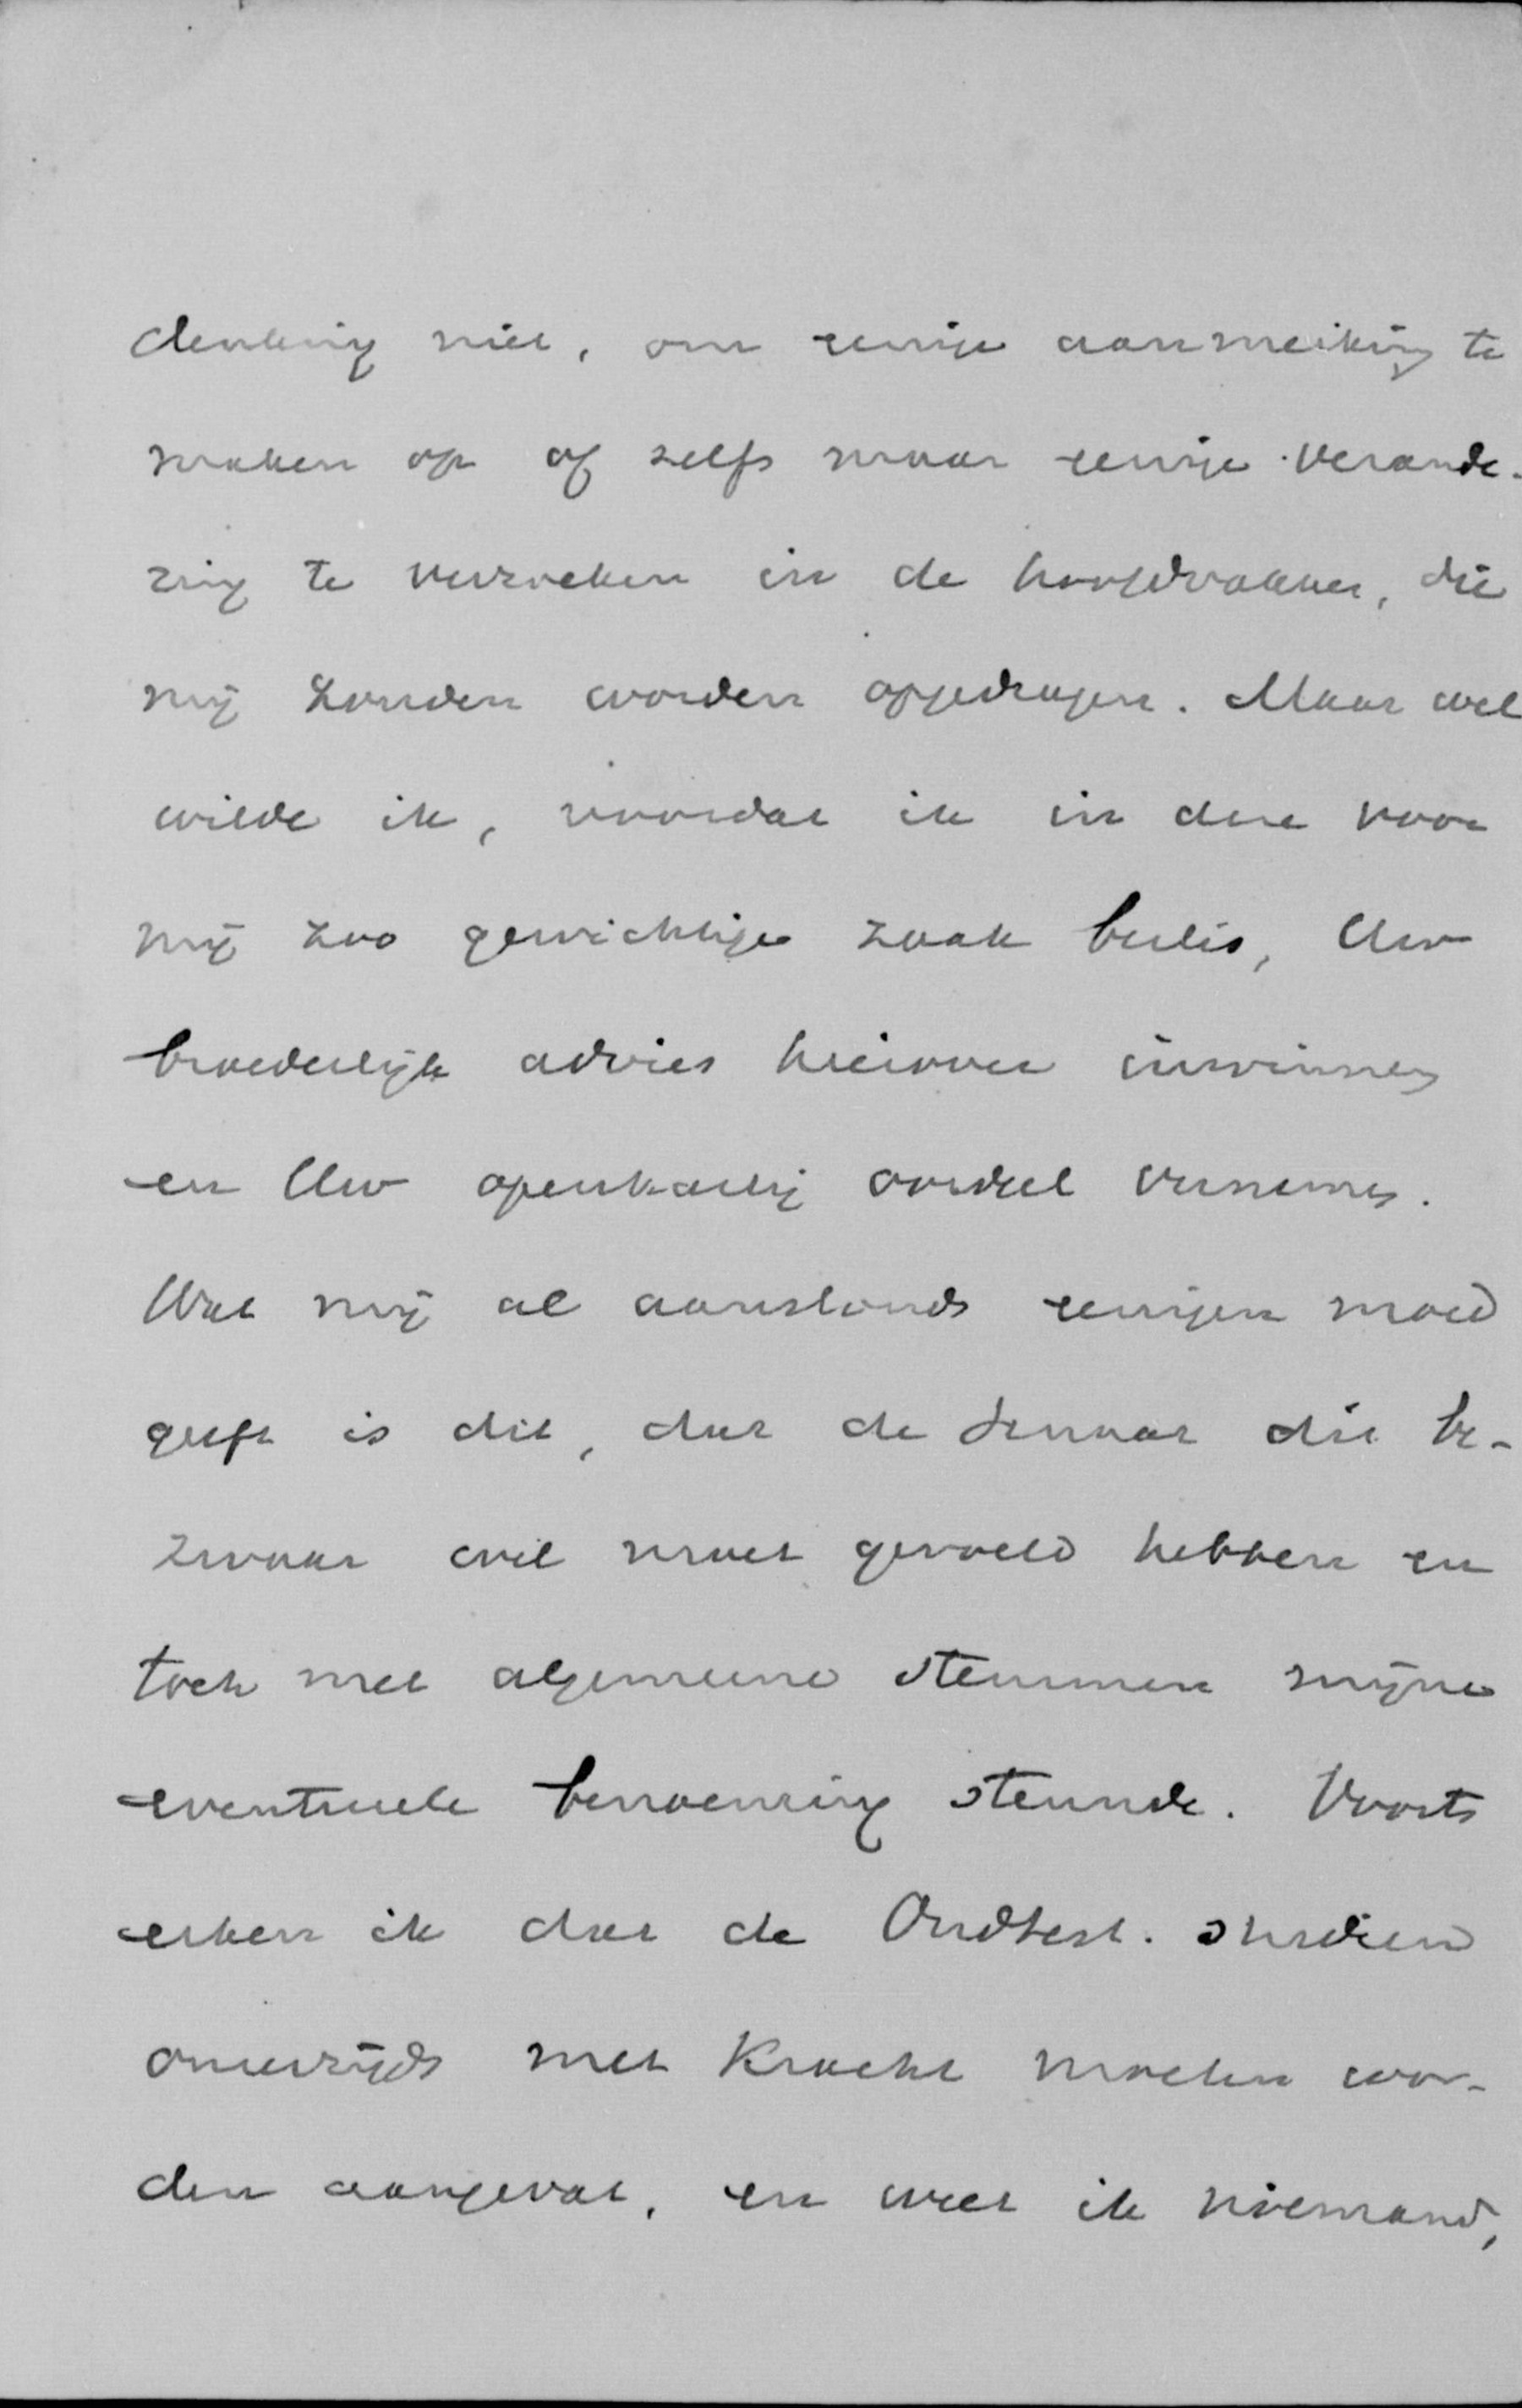 denking niet, om eenige aanmerking te
maken op of zelfs maar eenige verande-
ring te verzoeken in de hoofdvakken, die
mij zouden worden opgedragen. Maar wel
wilde ik, voordat ik in deze voor
mij zoo gewichtige zaak beslis, Uw
broederlijk advies hierover inwinnen
en Uw openhartig oordeel vernemen.
Wat mij al aanstonds eenigen moed
geeft is dit, dat de Senaat dit be-
zwaar ook moet gevoeld hebben en
toch met algemeene stemmen mijne
eventueele benoeming steunde. Voorts
erken ik dat de Oudtest. studiën
onzerzijds met kracht moeten wor-
den aangevat, en weet ik niemand,